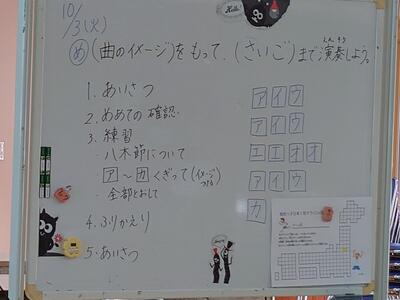 10/3(火)
め (曲のイメージ)をもって、(さいご)まで演奏しよう。
えんそう
1. あいさつ
2. めあての確認
3. 練習
・八木節について
ア〜カ くぎって(イメージつける)
・全部とおして
4. ふりかえり
5. あいさつ
アイウ
アイウ
エエオオ
アイウ
カ
Hello!